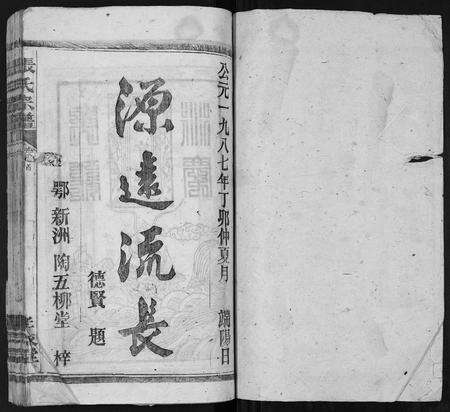 公元一九八七年丁卯仲夏月 端陽日
源遠流長
德賢 題
鄂新洲 陶五柳堂 梓
張氏宗譜